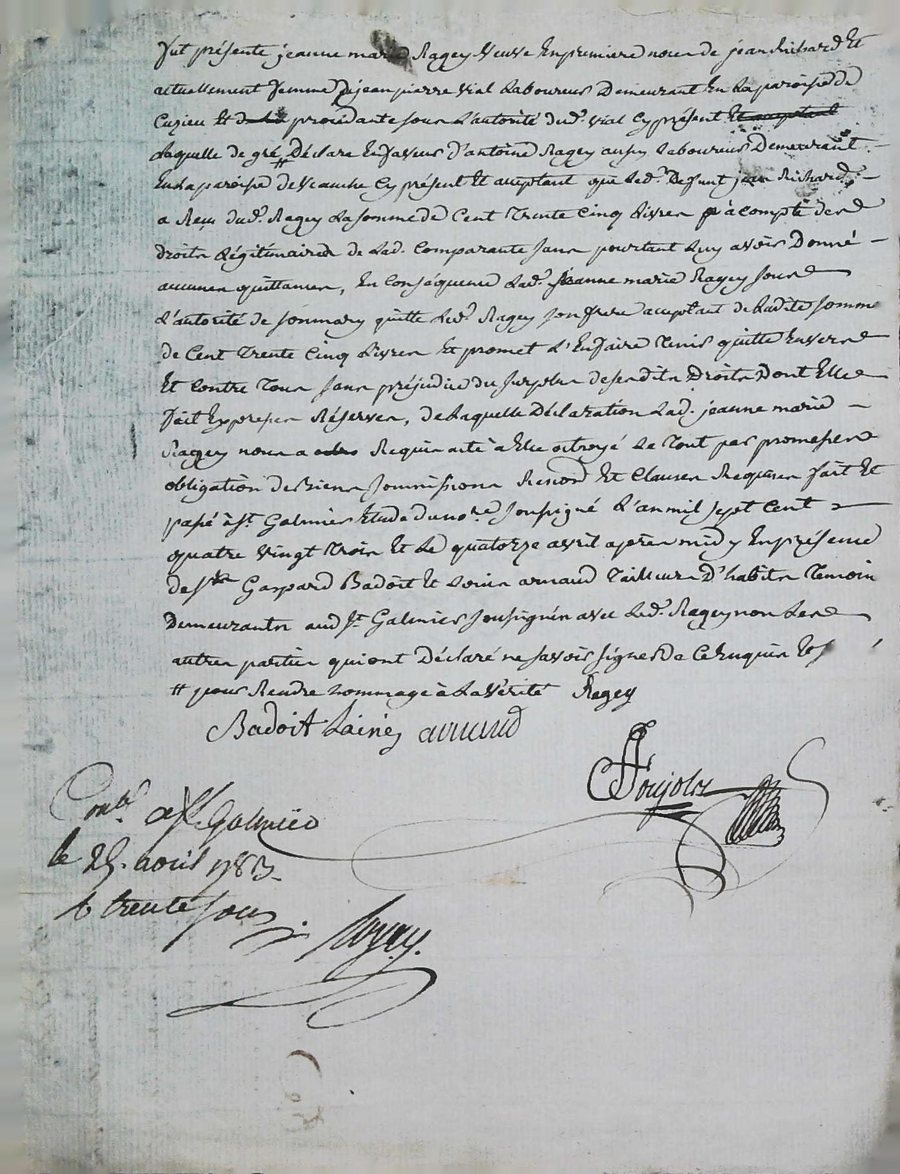 fut présente jeanne marie Ragey veuve En premiere noce de jean Richard Et
actuellement femme de jean pierre vial Laboureur Demeurant En La paroisse de
Cuzieu Et procedante sous L'autorité dud. vial Cy présent Et acceptant
Laquelle de gré # Déclare En faveur d'antoine Ragey aussy Laboureur Demeurant
En La paroisse de veauche Cy présent Et acceptant que Led. Deffunt jean Richard
a Reçu dud. Ragey La somme de Cent Trente Cinq Livres à compte des
droits Légitimaires de Lad. Comparante sans pourtant Luy avoir Donné
aucunes quittances, En conséquence Lad. jeanne marie Ragey sous
L'autorité de son mary quitte Led. Ragey son frere acceptant de Ladite somme
de Cent Trente Cinq Livres Et promet L'En faire Tenir quitte Envers
Et contre Tous sans préjudice du surplus desesdits Droits Dont Elle
fait Expresses Réserves, de Laquelle Déclaration Lad. jeanne marie
Ragey nous a Requis acte à Elle octroyé Le Tout par promesses
obligation de Biens soumissions Renon.d Et Clauses Requises fait Et
passé à St. Galmier Etude du no.re soussigné L'an mil sept Cent
quatre vingt Trois Et Le quatorze avril après midy En présence
de srs Gaspard Badoit Et Louis arnaud Tailleurs D'habits Temoin
Demeurants aud St. Galmier soussignés avec Led. Ragey non Les
autres parties qui ont Déclaré ne savoir signer De Ce Enquis Et s
# pour Rendre hommage à La vérité Ragey
Badoit Lainé arnaud
Poujols
Conlé. a St. Galmier
le 25. avril 1783.
R trente sous.